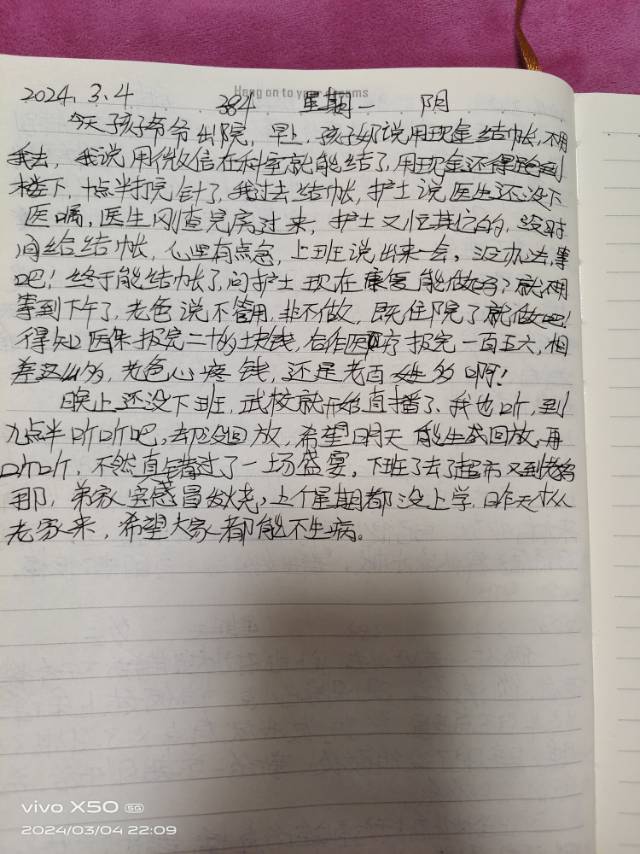 Hang on to your dreams
2024.3.4 384 星期一 阴
今天孩子爷爷出院，早上，孩子奶说用现金结帐，不用
我去，我说用微信在科室就能结了，用现金还得跑到
楼下，十点半打完针了，我过去结帐，护士说医生还没下
医嘱，医生刚查完房过来，护士又忙其它的，没时
间给结帐，心里有点急，上班说出来一会，没办法，等
吧！终于能结帐了，问护士现在康复能做吗？就
等到下午了，老爸说不管用，非不做，既住院了就做吧！
得知医保报完二十多块钱，合作医疗报完一百五六，相
差这么多，老爸心疼钱，还是老百姓多啊！
晚上还没下班，武校就开始直播了，我也听，到
九点半听听吧，却没回放，希望明天能生成回放，再
听听，不然真错过了一场盛宴，下班了去了超市又到老爸
那，弟家宝感冒发烧，上个星期都没上学，昨天才从
老家来，希望大家都能不生病。
vivo X50 5G
2024/03/04 22:09